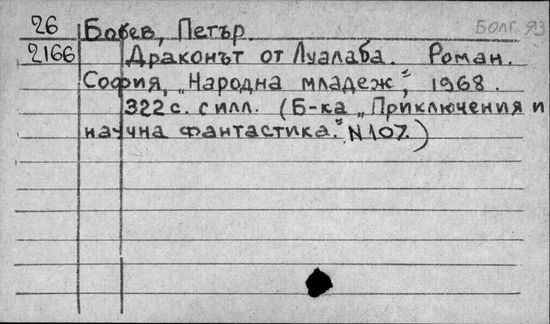 26 Бобев, Петър. Болг. 93
2166 Драконът от Луалаба. Роман.
София, „Народна младеж", 1968.
322 с. с илл. (Б-ка „Приключения и
научна фантастика." N 107.)